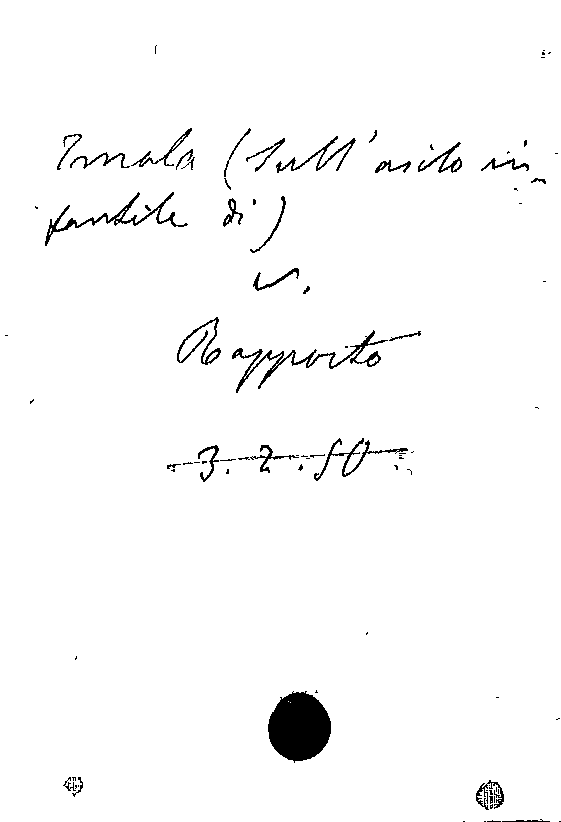 Imola (Sull'asilo in-
fantile di)
v.
Rapporto
3.2.50.